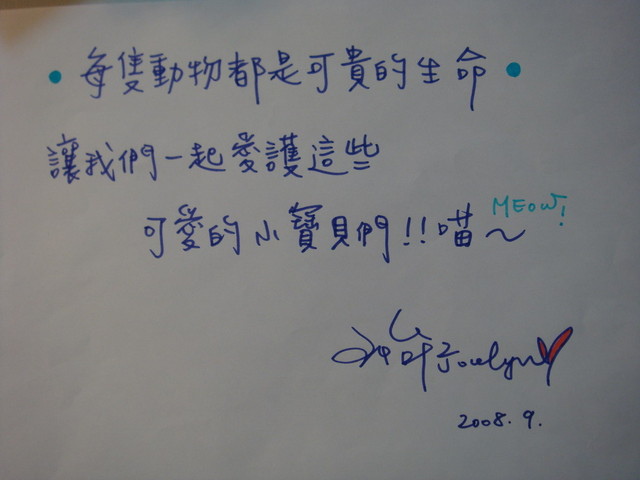 •每隻動物都是可貴的生命•
讓我們一起愛護這些
可愛的小寶貝們!!喵～ MEOW!
Jocelyn
2008.9.